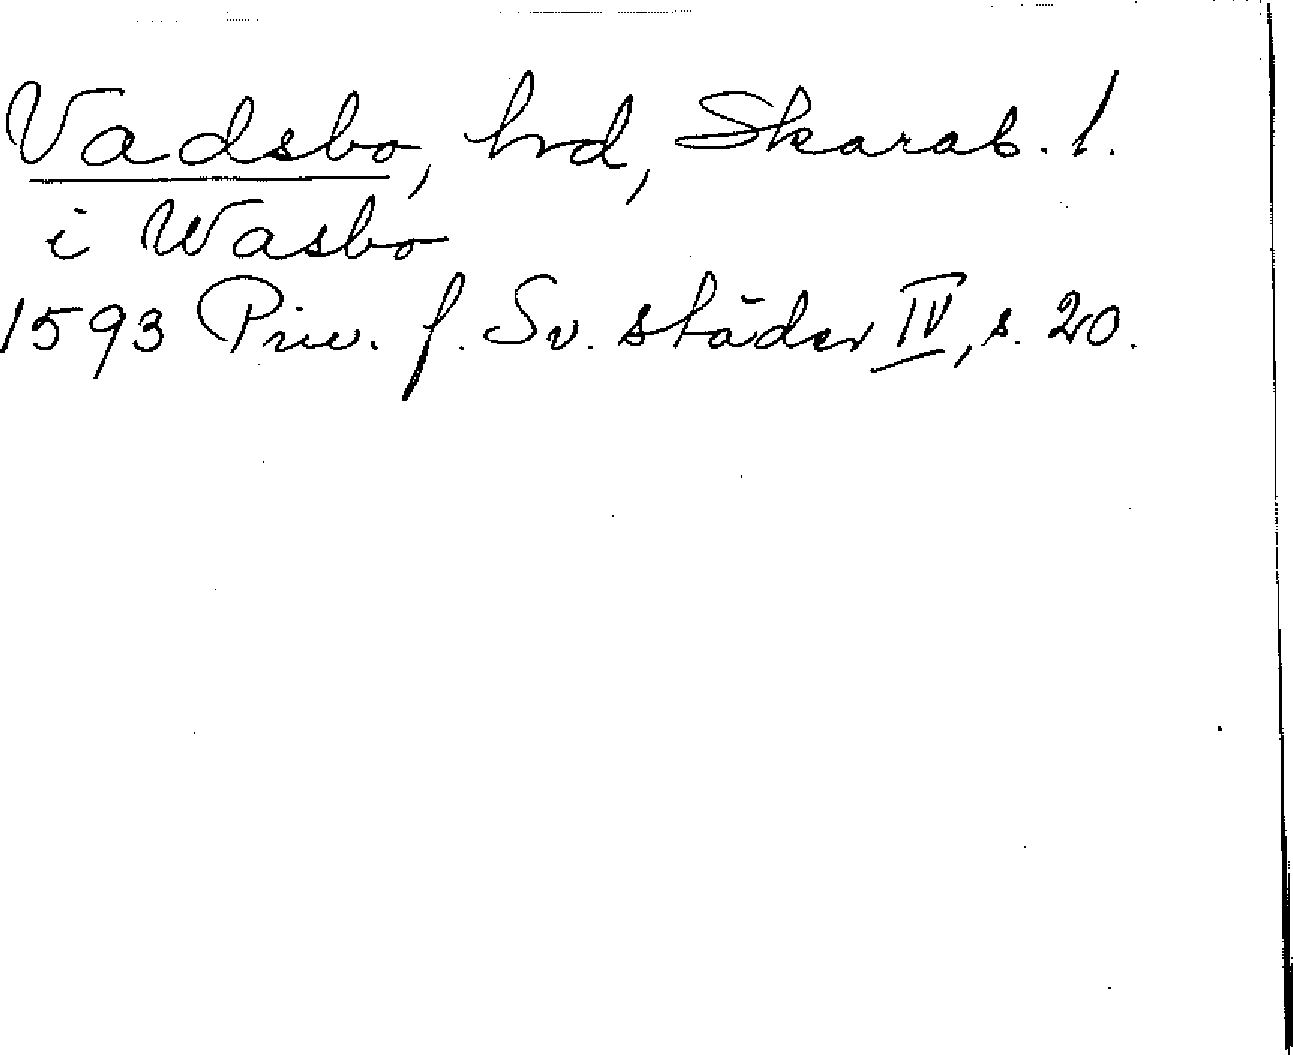 Vadsbo, hrd, Skarab. l.
i Wasbo
1593 Priv. f. Sv. städer IV, s. 20.